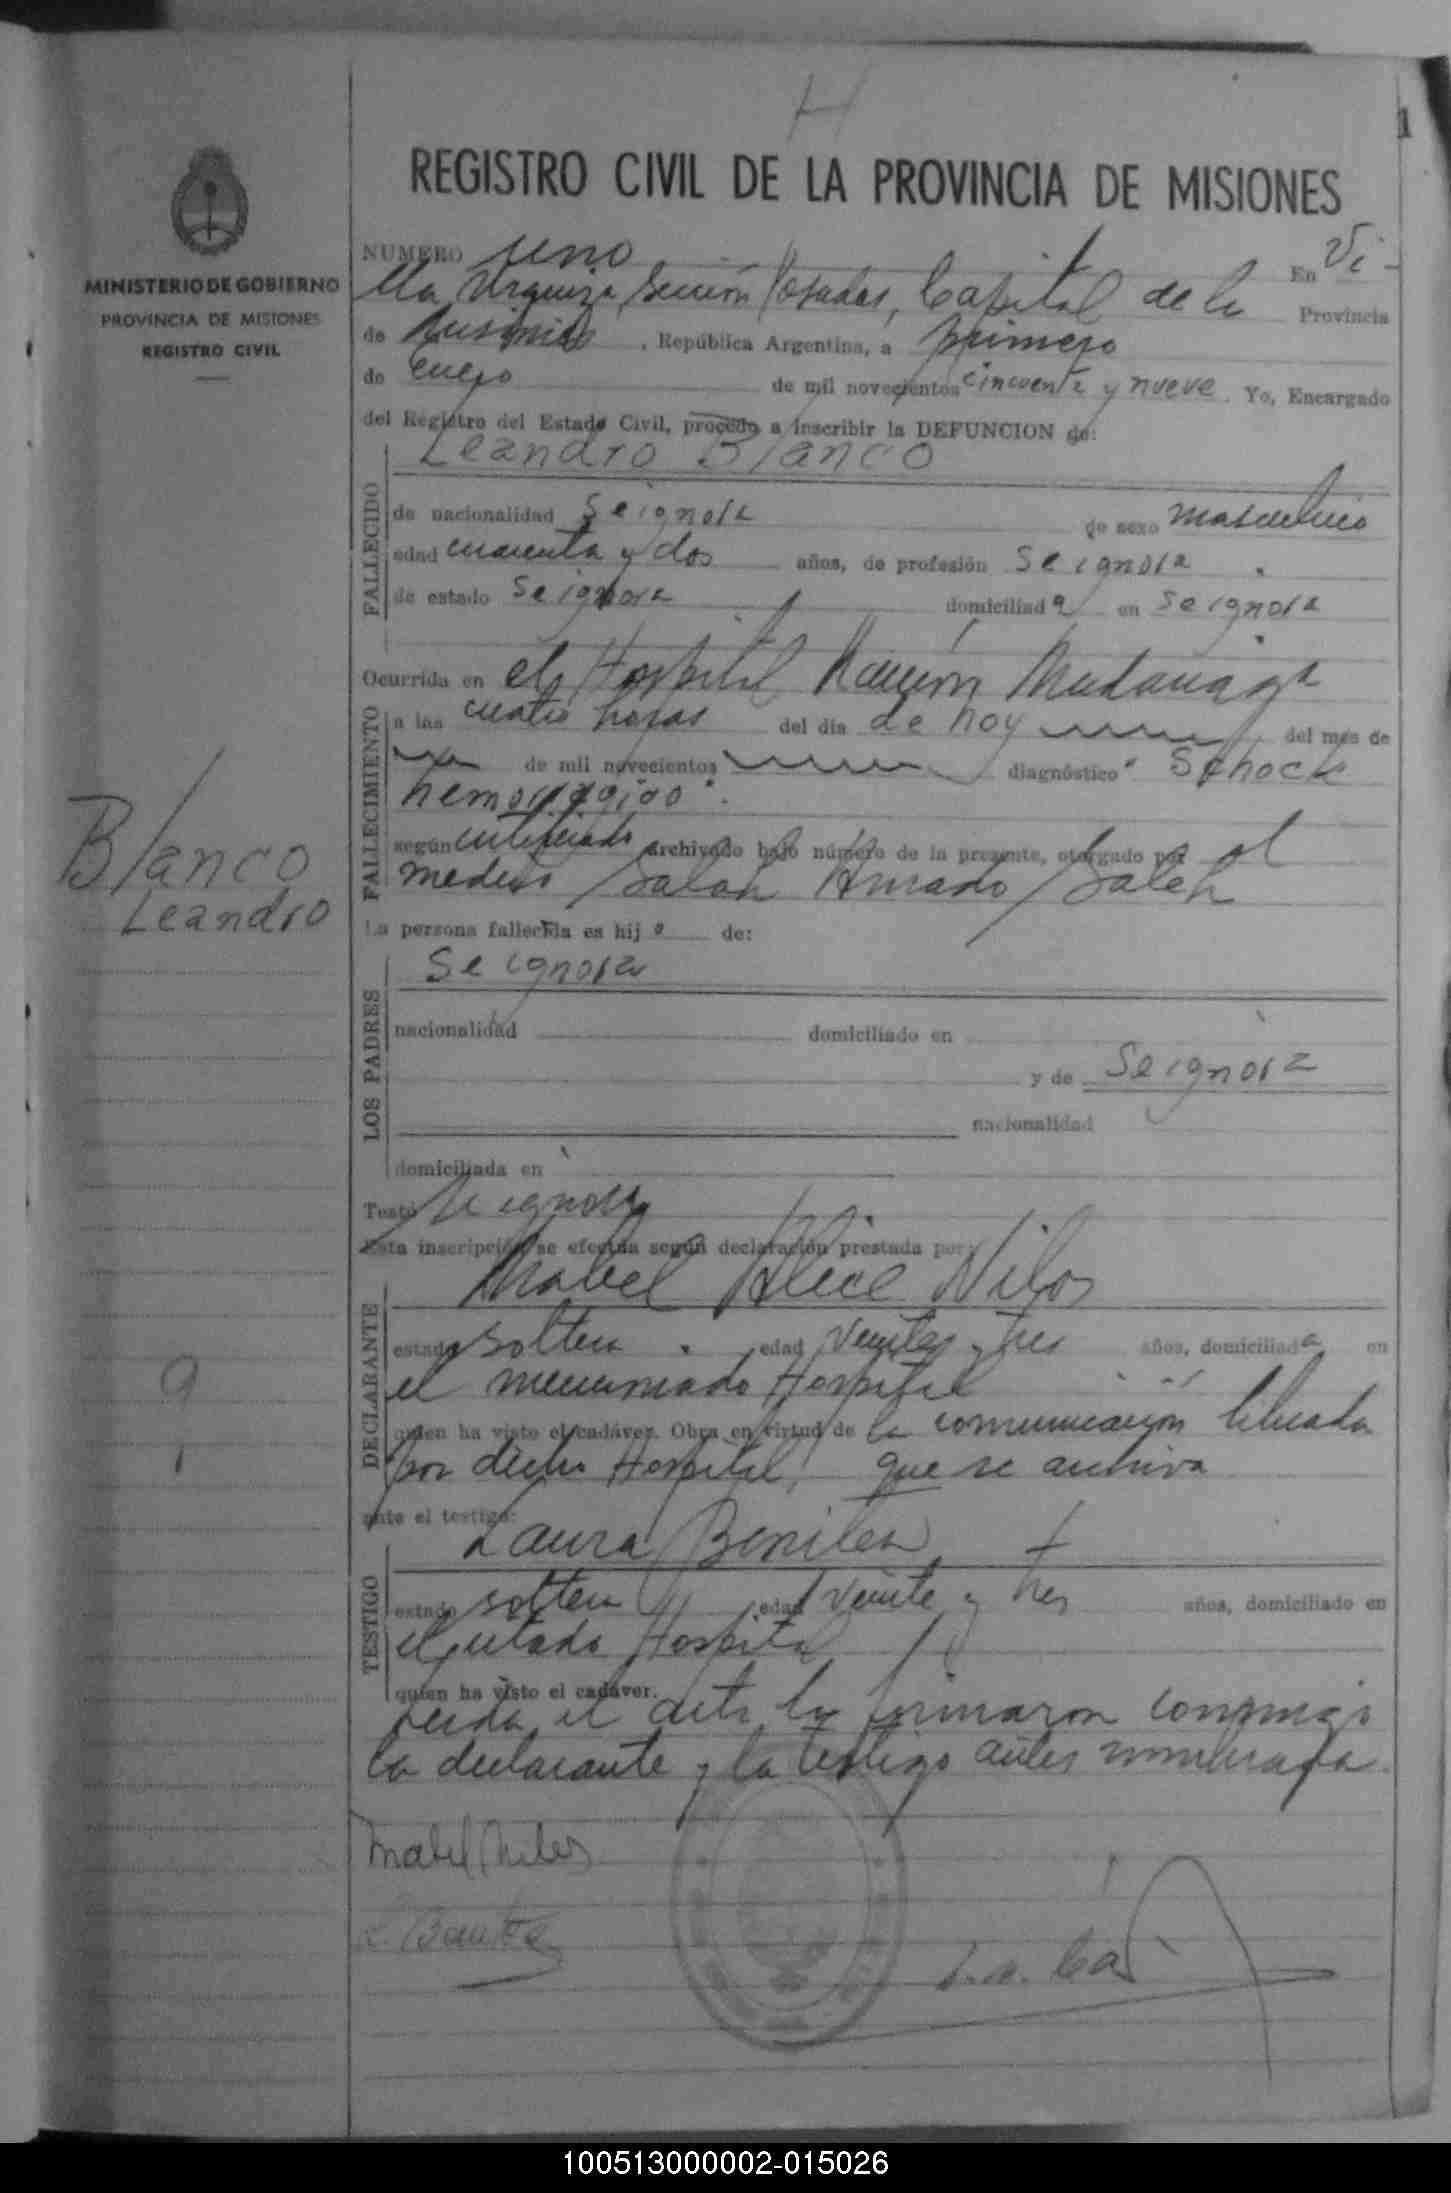 1
REGISTRO CIVIL DE LA PROVINCIA DE MISIONES
MINISTERIO DE GOBIERNO
PROVINCIA DE MISIONES
REGISTRO CIVIL
NUMERO uno En Vi-
lla Urquiza, Sección Posadas, Capital de la Provincia
de Misiones, República Argentina, a primero
de enero de mil novecientos cincuenta y nueve. Yo, Encargado
del Registro del Estado Civil, procedo a inscribir la DEFUNCION de:
Leandro Blanco
FALLECIDO
de nacionalidad Se ignora de sexo masculino
edad cuarenta y dos años, de profesión Se ignora.
de estado Se ignora domiciliado en Se ignora
Ocurrida en el Hospital Ramón Madariaga
FALLECIMIENTO
a las cuatro horas del día de hoy del mes de
de mil novecientos diagnóstico "Schock
hemorrágico".
según certificado archivado bajo número de la presente, otorgado por el
medico Salah Amado Saleh
Blanco
Leandro
La persona fallecida es hijo de:
LOS PADRES
Se ignora
nacionalidad domiciliado en
y de Se ignora
nacionalidad
domiciliada en
Testó Se ignora
Esta inscripción se efectúa según declaración prestada por:
DECLARANTE
Mabel Alice Nilos
estado soltera. edad veinte y tres años, domiciliada en
el mencionado Hospital
quien ha visto el cadáver. Obra en virtud de la comunicación librada
por dicho Hospital, que se archiva
ante el testigo:
TESTIGO
Laura Benitez
estado soltera edad veinte y tres años, domiciliado en
el citado Hospital
quien ha visto el cadáver.
Leida el acta la firmaron conmigo
la declarante y la testigo antes nombrada.
Mabel Nilos
L. Benitez
100513000002-015026